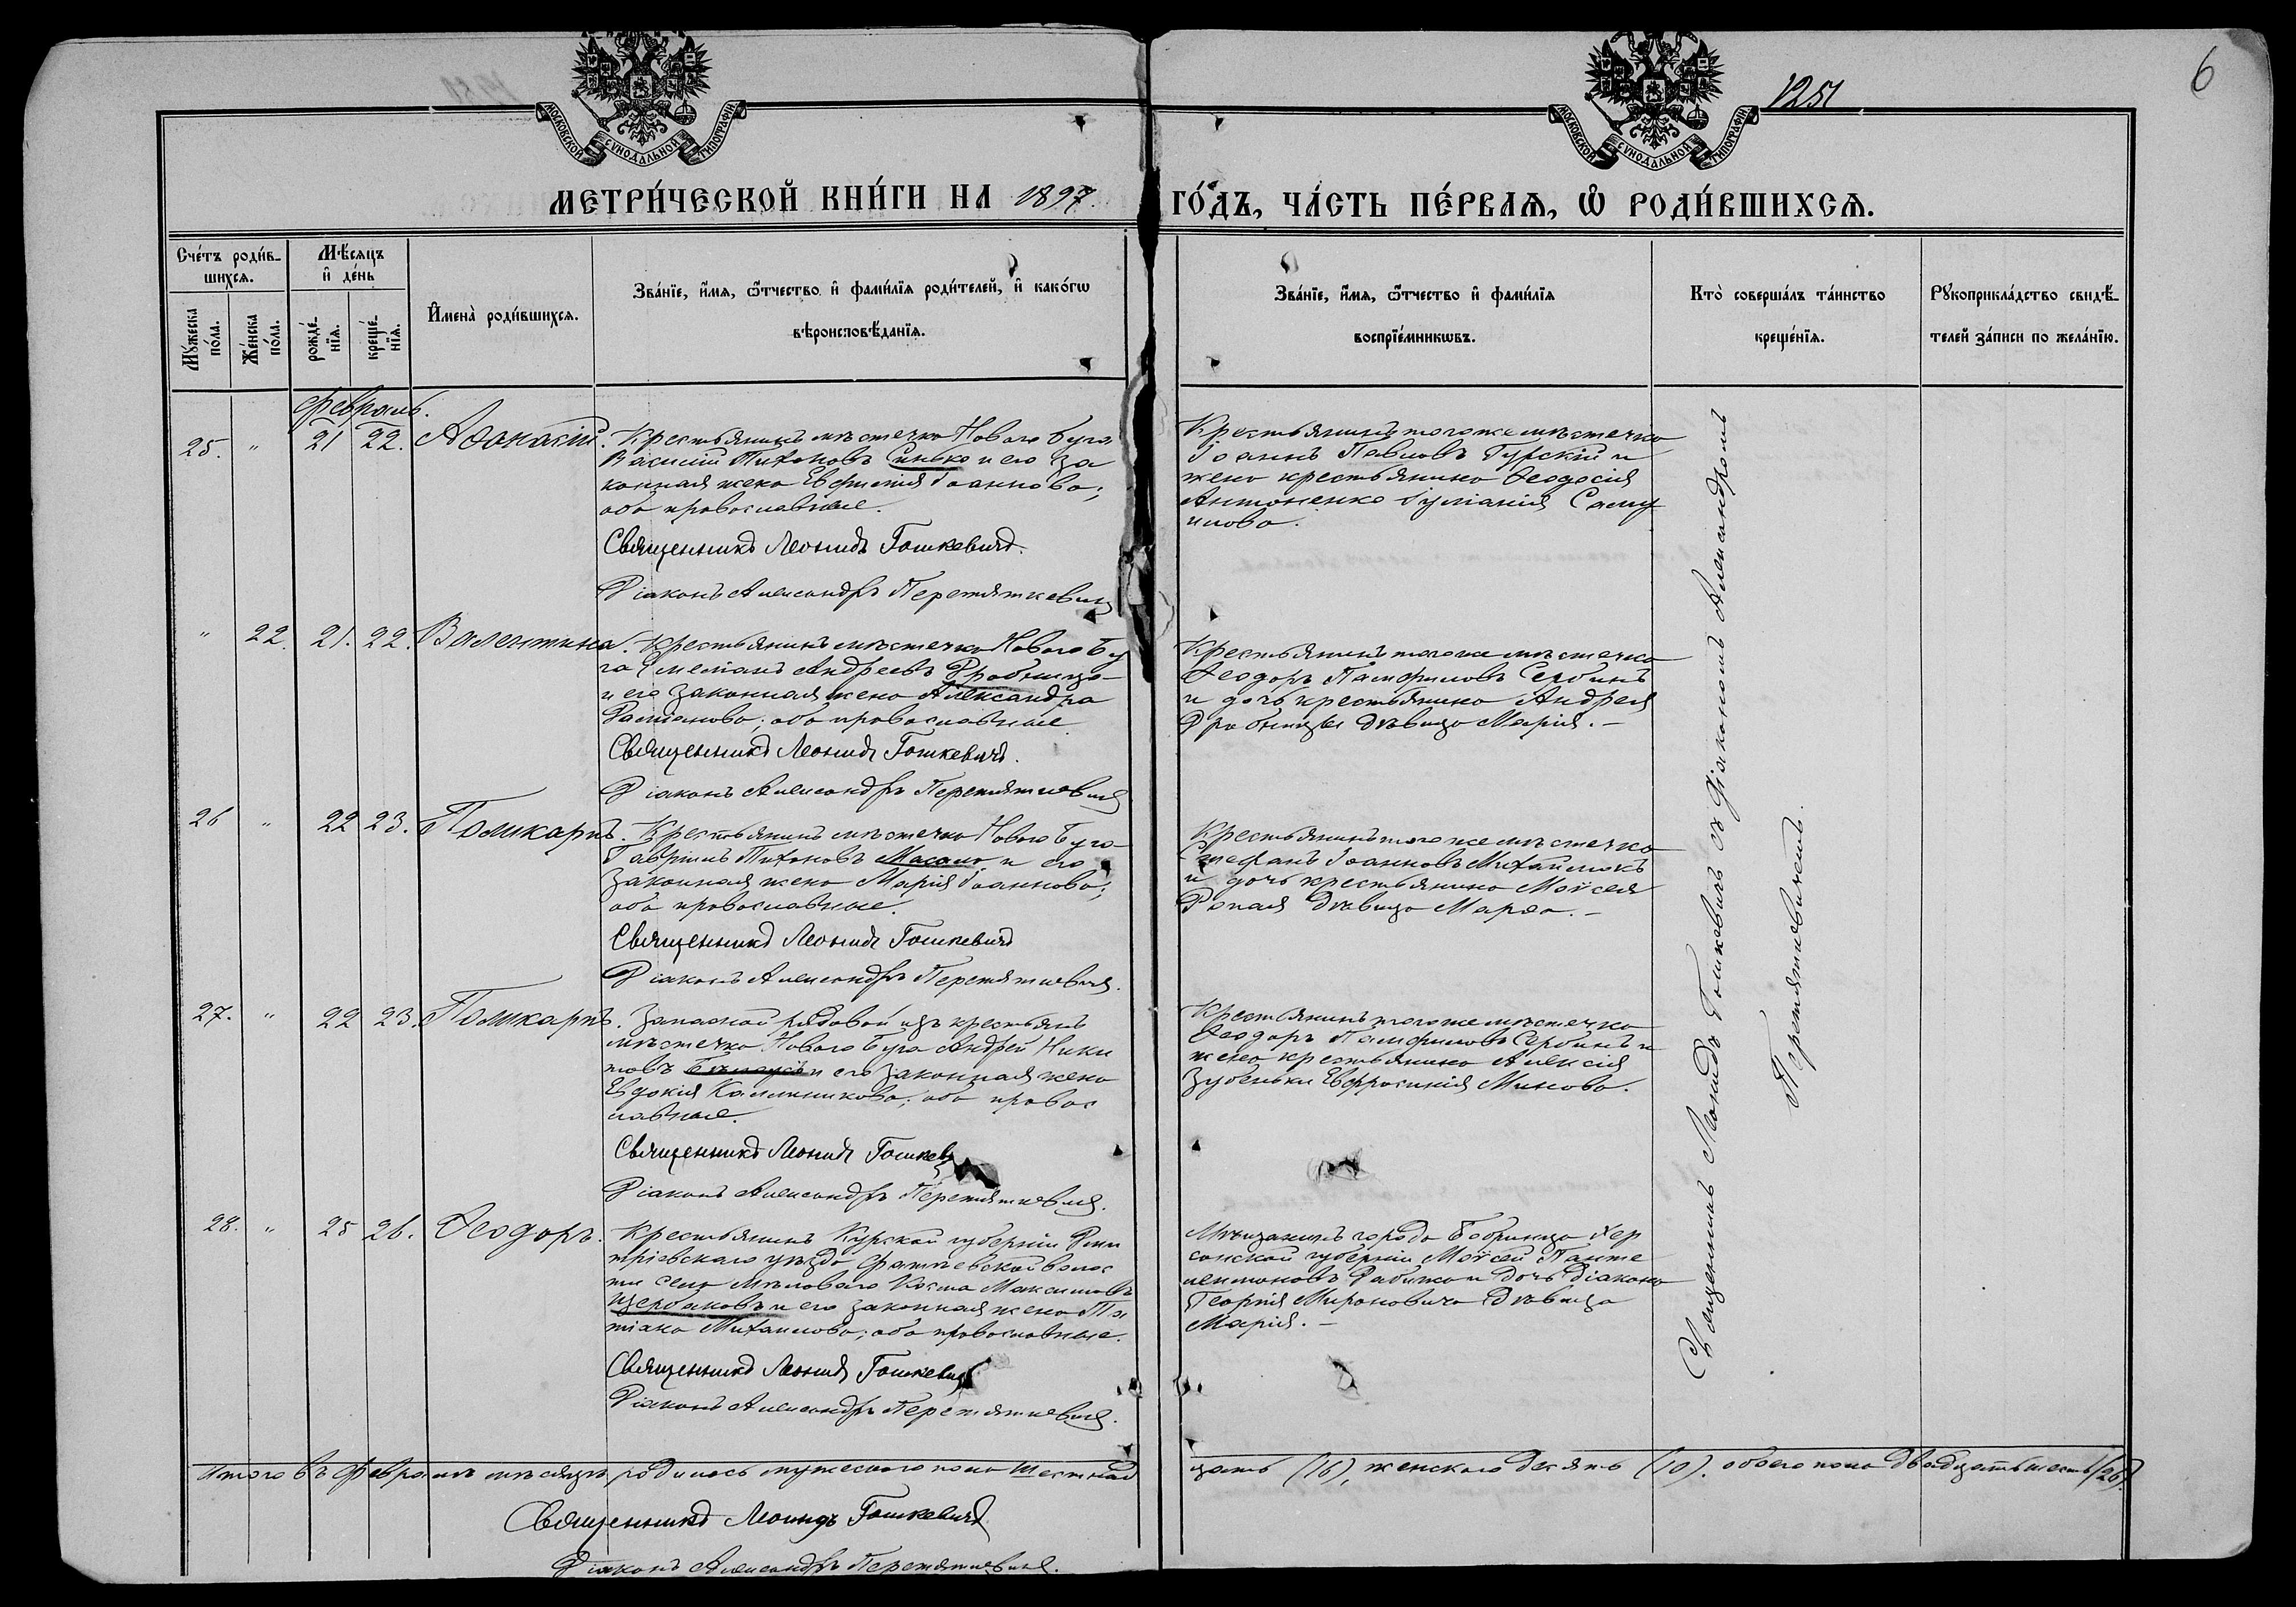 1251
6
МОСКОВСКОЙ СѴНОДАЛЬНОЙ ТИПОГРАФІИ
МОСКОВСКОЙ СѴНОДАЛЬНОЙ ТИПОГРАФІИ
МЕТРИ́ЧЕСКОЙ КНИ́ГИ НА 1897 ГО́ДЪ, ЧА́СТЬ ПЕ́РВАѦ, Ѽ РОДИ́ВШИХСѦ.
Сче́тъ роди́в-
шихсѧ.
Мꙋ́жеска
по́ла.
Же́нска
по́ла.
Мѣ́сѧцъ
и҆ де́нь
рожде́-
нїѧ.
креще́-
нїѧ.
И҆мена̀ роди́вшихсѧ.
Зва́нїе, и҆́мѧ, ѻ҆́тчество и҆ фами́лїѧ роди́телей, и҆ како́гѡ
вѣроисповѣ́данїѧ.
Зва́нїе, и҆́мѧ, ѻ҆́тчество и҆ фами́лїѧ
воспрїе́мникѡвъ.
Кто̀ соверша́лъ та́инство
креще́нїѧ.
Рꙋкоприкла́дство свидѣ́-
телей за́писи по жела́нїю.
февраль.
25. " 21 22. Аѳанасій.
Крестьянинъ мѣстечка Новаго Буга
Василій Тихоновъ Синько и его за
конная жена Евфимія Іоаннова;
оба православные.
Священникъ Леонидъ Гошкевичъ.
Діаконъ Александръ Перетяткевичъ
Крестьянинъ того же мѣстечка
Іоаннъ Павловъ Гурскій и
жена крестьянина Ѳеодосія
Антоненко Іуліанія Саму
илова.
" 22. 21. 22. Валентина.
Крестьянинъ мѣстечка Новаго Бу
га Емеліанъ Андреевъ Дробница
и его законная жена Александра
Даміанова; оба православные
Священникъ Леонидъ Гошкевичъ.
Діаконъ Александръ Перетяткевичъ
Крестьянинъ того же мѣстечка
Ѳеодоръ Памфиловъ Сербинъ
и дочь крестьянина Андрея
Дробницы дѣвица Марія. —
26 " 22 23. Поликарпъ.
Крестьянинъ мѣстечка Новаго Буга
Гавріилъ Тихоновъ и его
законная жена Марія Іоаннова;
оба православные.
Священникъ Леонидъ Гошкевичъ
Діаконъ Александръ Перетяткевичъ.
Крестьянинъ того же мѣстечка
Стефанъ Іоанновъ Михайлюкъ
и дочь крестьянина Моѵсея
Репая дѣвица Марѳа. —
27. " 22 23. Поликарпъ.
Запасной рядовой изъ крестьянъ
мѣстечка Новаго Буга Андрей Ники
товъ и его законная жена
Евдокія Каллиникова; оба правос
лавные.
Священникъ Леонидъ Гошкевичъ
Діаконъ Александръ Перетяткевичъ.
Крестьянинъ того же мѣстечка
Ѳеодоръ Памфиловъ Сербинъ и
жена крестьянина Алексія
Зубенька Евфросинія Минова.
28. " 25 26. Ѳеодоръ.
Крестьянинъ Курской губерніи Дми
тріевскаго уѣзда Фатѣевской волос
ти села Мѣловаго Косма Максимовъ
Щербаковъ и его законная жена Та
тіана Михаилова; оба православные.
Священникъ Леонидъ Гошкевичъ
Діаконъ Александръ Перетяткевичъ.
Мѣщанинъ города Бобринца Хер
сонской губерніи Моѵсей Панте
леимоновъ и дочь діакона
Георгія Мироновича дѣвица
Марія. —
Священникъ Леонидъ Гошкевичъ съ діакономъ Александромъ
Перетяткевичемъ.
Итого въ февралѣ мѣсяцѣ родилось мужескаго пола шестнад
цать (16), женскаго десять (10). обоего пола двадцать шесть (26).
Священникъ Леонидъ Гошкевичъ
Діаконъ Александръ Перетяткевичъ.